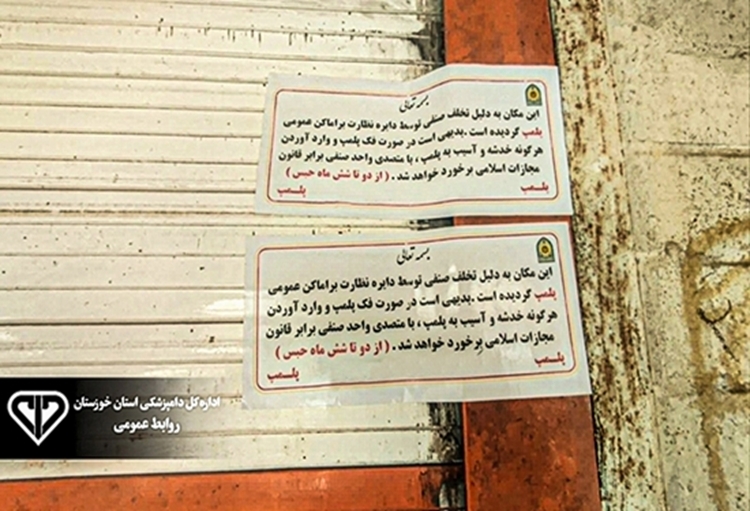 بسمه تعالی
این مکان به دلیل تخلف صنفی توسط دایره نظارت براماکن عمومی
پلمپ گردیده است .بدیهی است در صورت فک پلمپ و وارد آوردن
هرگونه خدشه و آسیب به پلمپ ، با متصدی واحد صنفی برابر قانون
مجازات اسلامی برخورد خواهد شد . ( از دو تا شش ماه حبس )
پلـمپ پلـمپ
بسمه تعالی
این مکان به دلیل تخلف صنفی توسط دایره نظارت براماکن عمومی
پلمپ گردیده است .بدیهی است در صورت فک پلمپ و وارد آوردن
هرگونه خدشه و آسیب به پلمپ ، با متصدی واحد صنفی برابر قانون
مجازات اسلامی برخورد خواهد شد . ( از دو تا شش ماه حبس )
پلـمپ پلـمپ
اداره کل دامپزشکی استان خوزستان
روابط عمومی